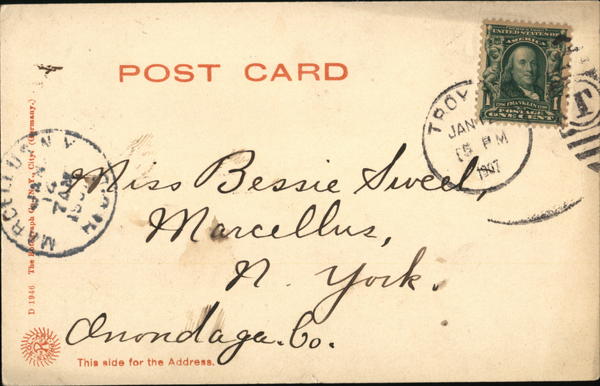 POST CARD
UNITED STATES OF
AMERICA
FRANKLIN
POSTAGE
ONE CENT
TROY
JAN
6 PM
1907
MARCELLUS N.Y.
JAN
7 AM
Miss Bessie Sweet,
Marcellus,
N. York.
Onondaga. Co.
This side for the Address.
D 1946 The Rotograph Co., N.Y. City (Germany.)